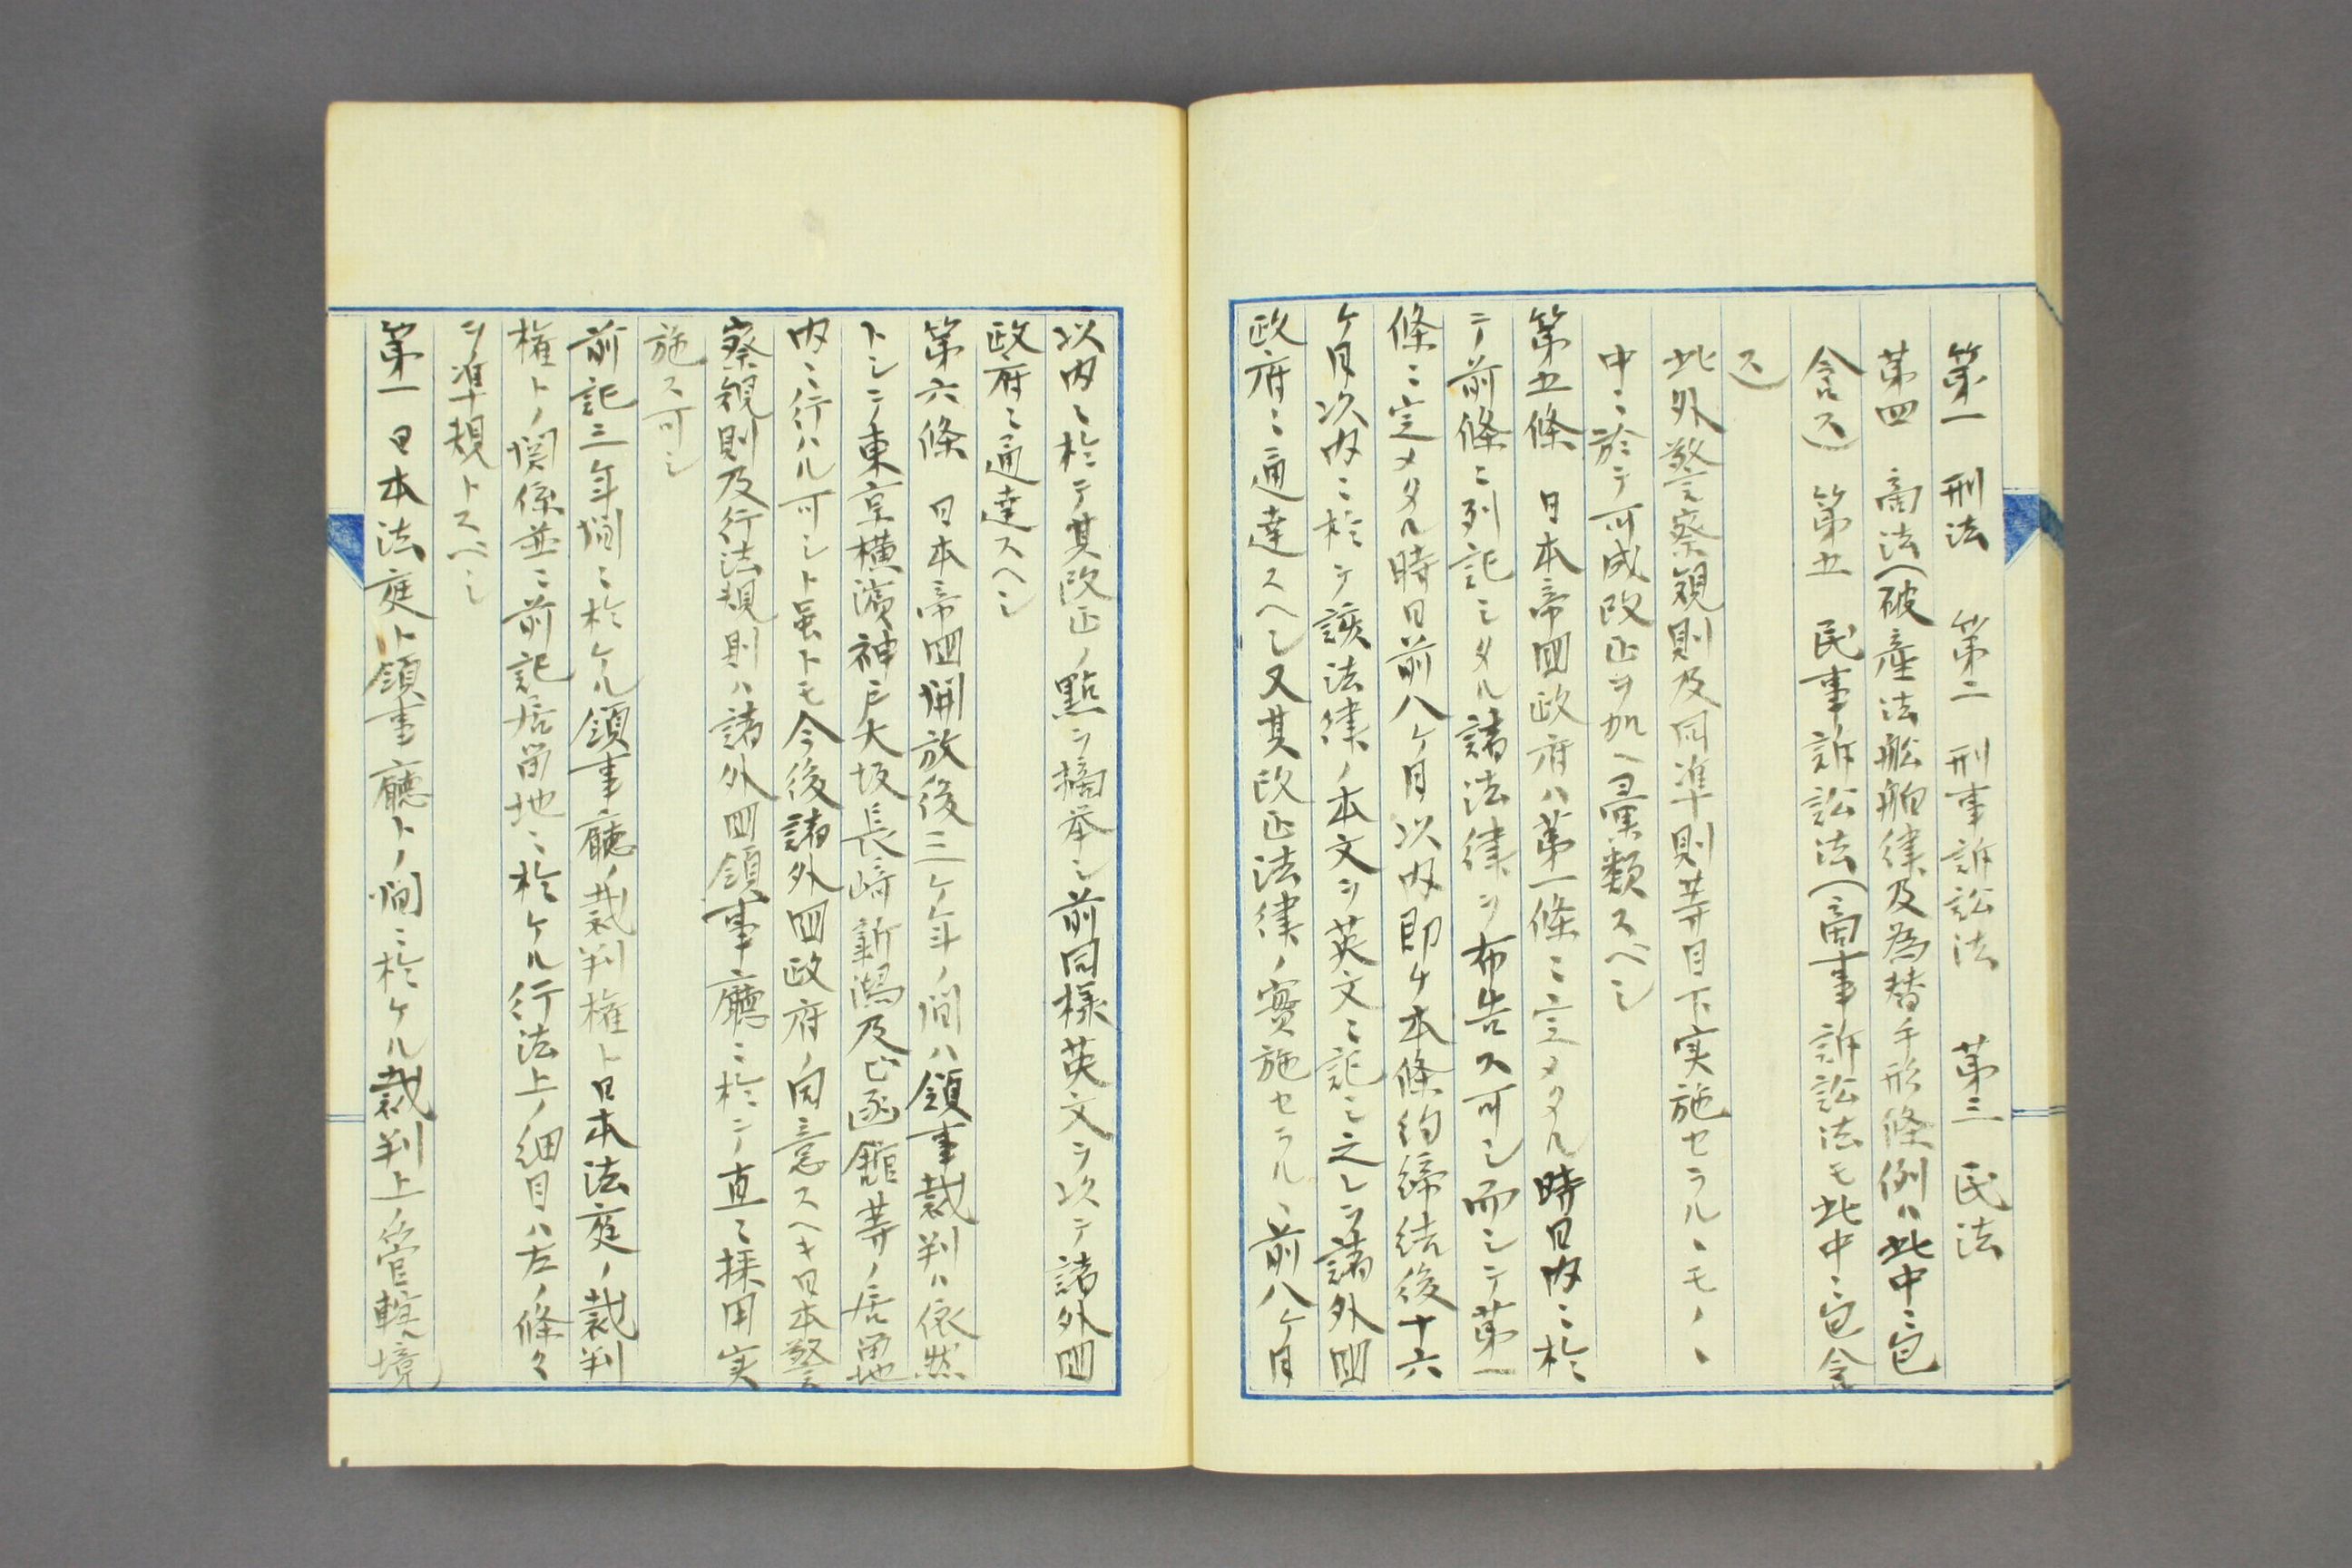 第一　刑法　第二　刑事訴訟法　第三　民法
第四　商法(破産法舩舶律及為替手形條例ハ此中ニ包
含ス)　第五　民事訴訟法(商事訴訟法モ此中ニ包含
ス)
此外警察規則及同準則等目下実施セラルヽモノヽ
中ニ於テ可成改正ヲ加ヘ彙類スベシ
第五條　日本帝囯政府ハ第一條ニ定メタル時日内ニ於
テ前條ニ列記シタル諸法律ヲ布告ス可シ而シテ第一
條ニ定メタル時日前八ケ月以内即チ本條約締結後十六
ケ月以内ニ於テ該法律ノ本文ヲ英文ニ記シ之レヲ諸外囯
政府ニ通達スヘシ又其改正法律ノ實施セラルヽ前八ケ月
以内ニ於テ其改正ノ點ヲ摘举シ前同様英文ヲ以テ諸外囯
政府ニ通達スヘシ
第六條　日本帝囯開放後三ケ年ノ間ハ領事裁判ハ依然
トシテ東京横濱神戸大坂長﨑新潟及ビ函舘等ノ居留地
内ニ行ハル可シト虽トモ今後諸外囯政府ノ同意スヘキ日本警
察規則及行法規則ハ諸外囯領事廳ニ於テ直ニ採用実
施ス可シ
前記三年間ニ於ケル領事廳ノ裁判権ト日本法庭ノ裁判
権トノ関係並ニ前記居留地ニ於ケル行法上ノ細目ハ左ノ條々
ヲ準規トスベシ
第一　日本法庭ト領事廳トノ間ニ於ケル裁判上ノ管轄境